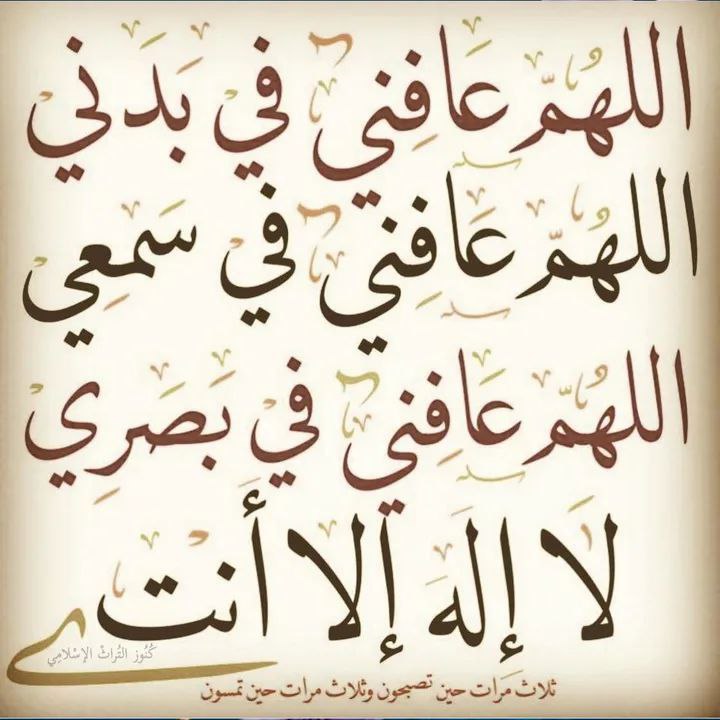 اللهمّ عَافِني في بَدَني
اللهمّ عَافِني في سَمعِي
اللهمّ عَافِني في بَصَرِي
لَا إِلهَ إلا أَنتَ
كُنُوز التُراثْ الإسْلامِي
ثلاثَ مَرات حين تصبحون وثلاث مرات حين تمسون